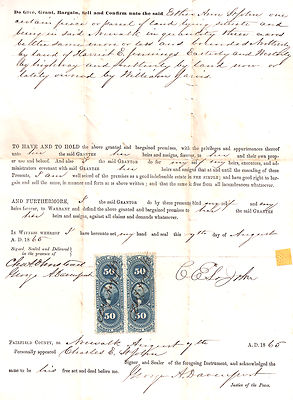 Do Give, Grant, Bargain, Sell and Confirm unto the said Esther Ann St John one
certain piece or parcel of land lying situate and
being in said Norwalk in quantity three acres
little same more or less and bounded Northerly
by land of Harvid E. Jennings Easterly and Westerly
by highway and Southerly by land now or
lately owned by William Jarvis
TO HAVE AND TO HOLD the above granted and bargained premises, with the privileges and appurtenances thereof
unto her the said GRANTEE her heirs and assigns, forever, to her and their own proper
use and behoof. And also I the said GRANTOR do for my self my heirs, executors, and
administrators covenant with said GRANTEE her heirs and assigns that at and until the ensealing of these
Presents, I am well seized of the premises as a good indefeasible estate in FEE SIMPLE; and have good right to bargain
and sell the same, in manner and form as is above written; and that the same is free from all incumbrances whatsoever.
AND FURTHERMORE, I the said GRANTOR do by these presents bind my self and my
heirs forever, to WARRANT and defend the above granted and bargained premises to her the said GRANTEE
her heirs and assigns, against all claims and demands whatsoever.
IN WITNESS WHEREOF I have hereunto set my hand and seal this 9th day of August
A. D. 1865
Signed, Sealed and Delivered
in the presence of
Chas Olmstead
George A Davenport
C E St John
50 50
50 50
FAIRFIELD COUNTY, ss. Norwalk August 9th A. D. 1865
Personally appeared Charles E. St John
Signer and Sealer of the foregoing Instrument, and acknowledged
the same to be his free act and deed before me.
George A Davenport
Justice of the Peace.